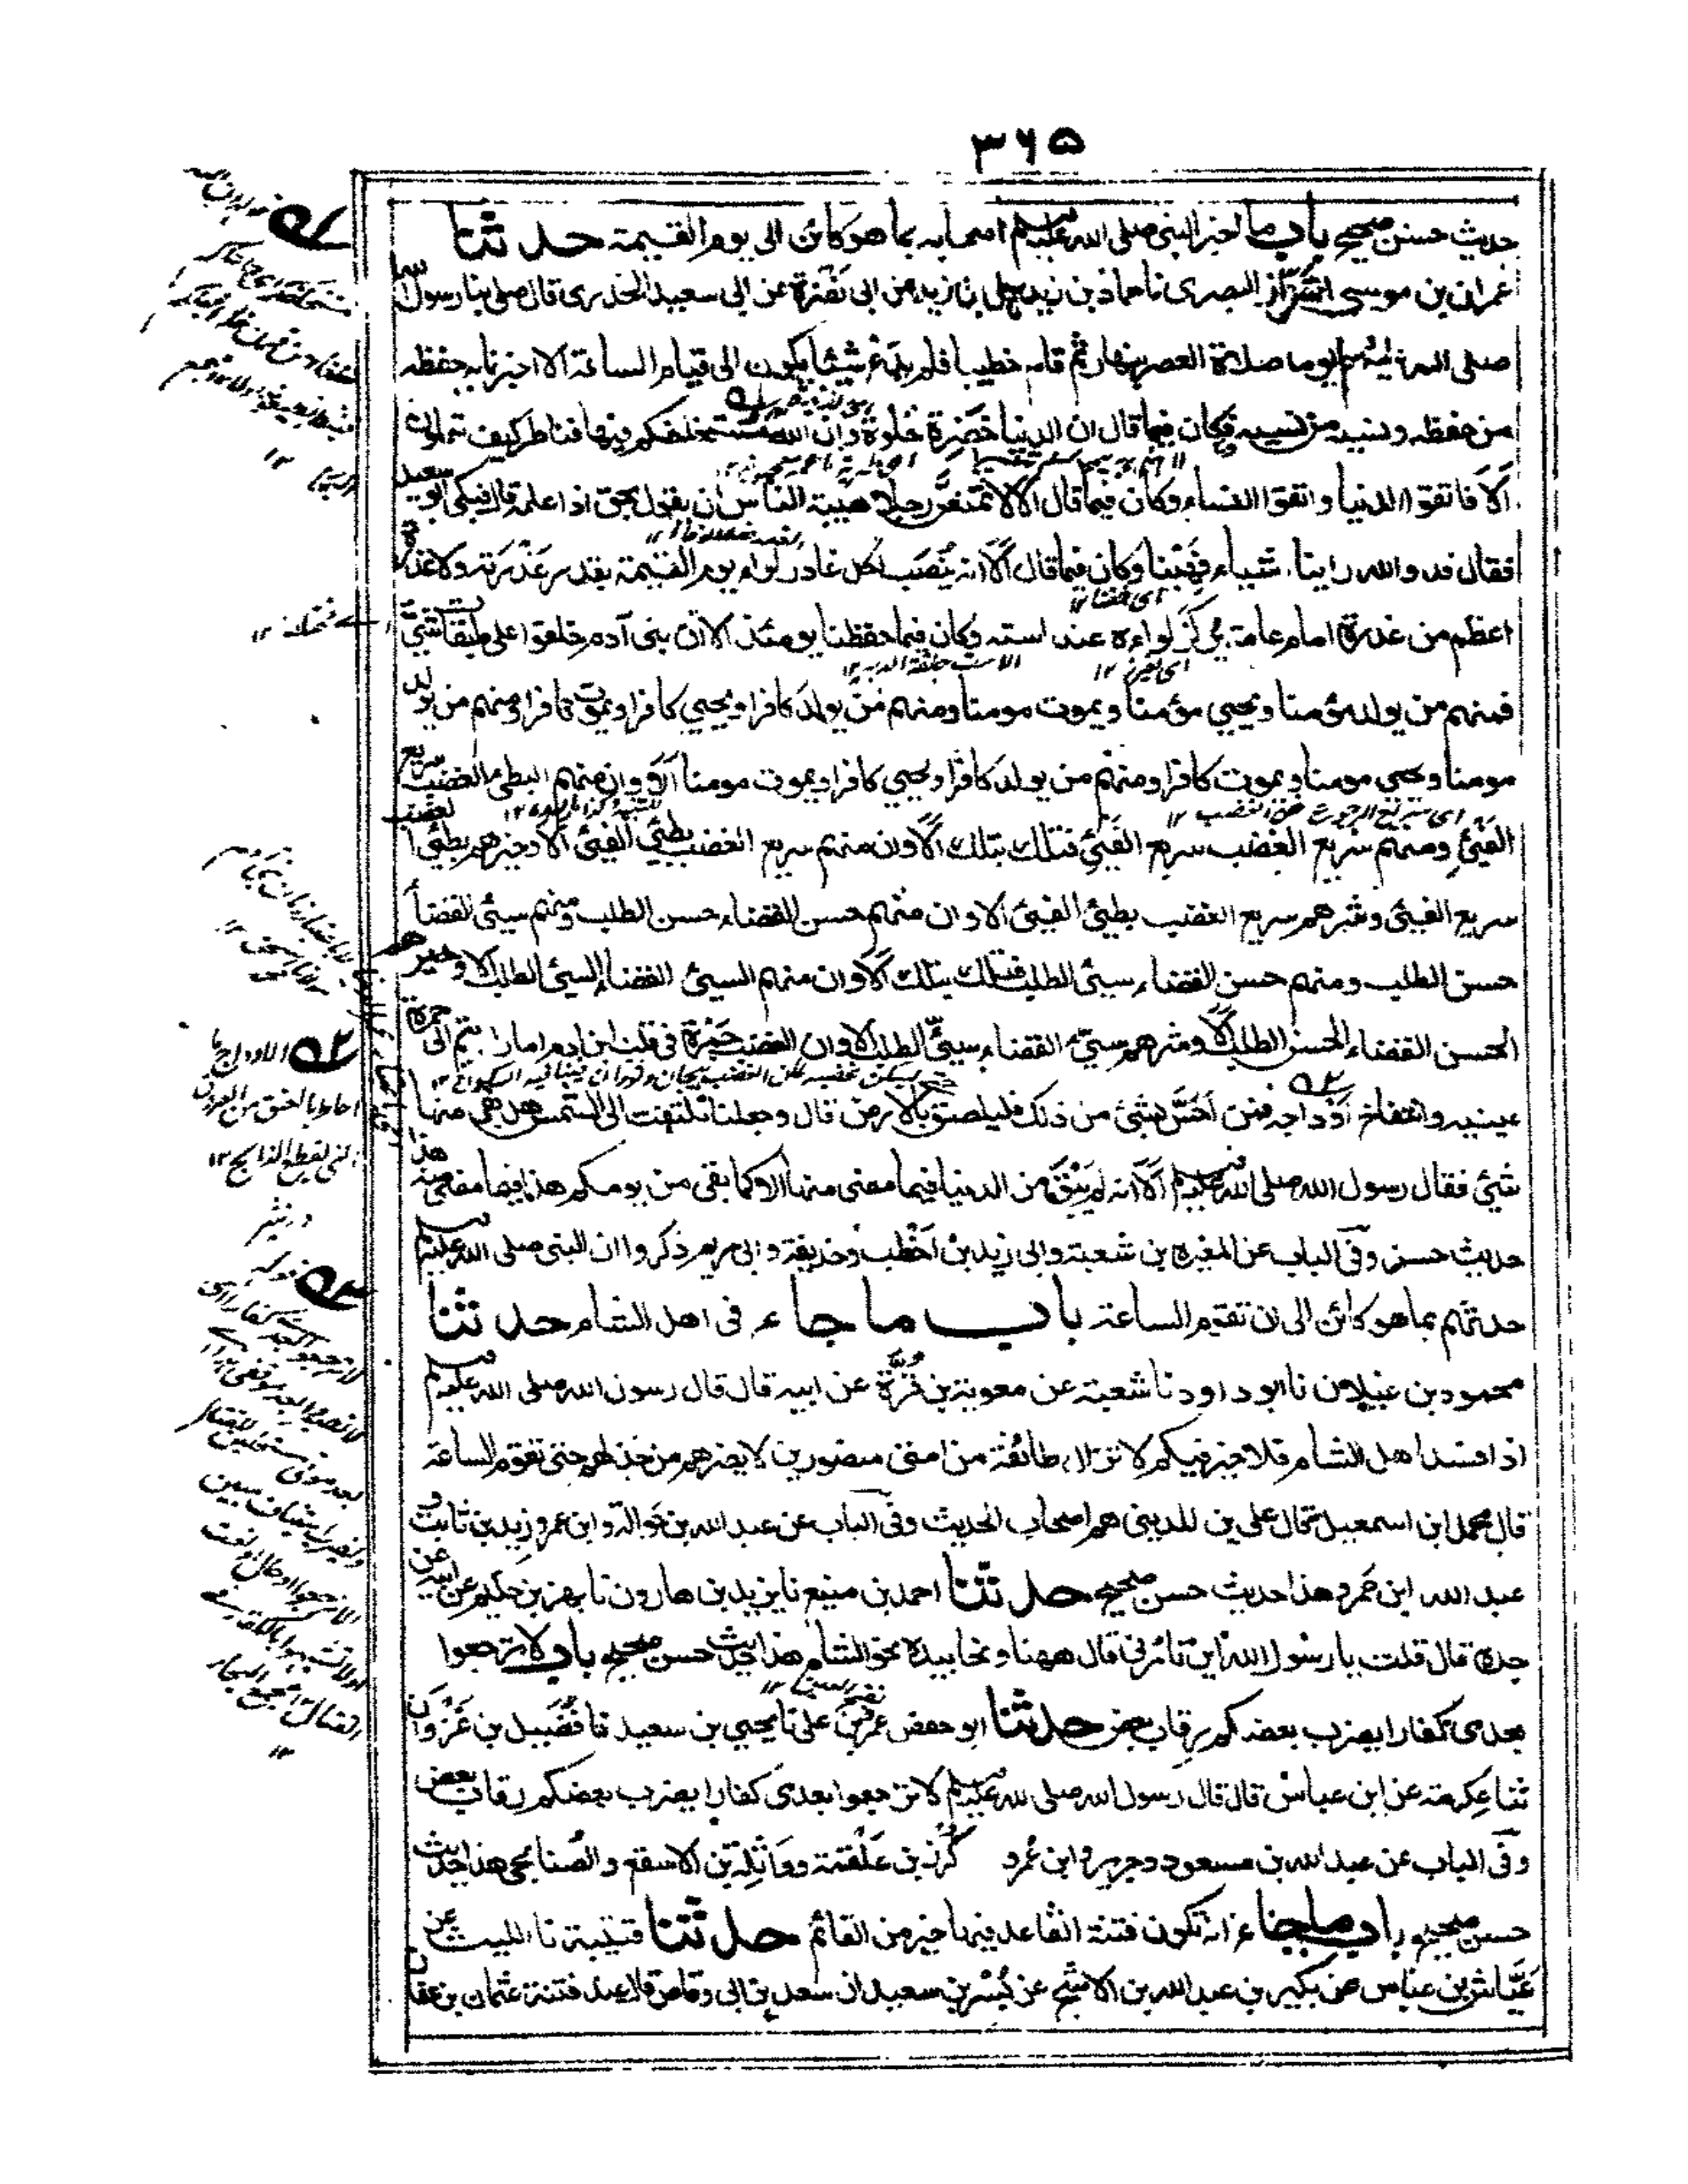 ٣٦٥
حديث حسن صحيح باب ما اخبر النبي صلى الله عليه وسلم اصحابه بما هو كائن الى يوم القيمة حدثنا
عمران بن موسى القزاز البصرى نا حماد بن زيد نا على بن زيد عن ابى نضرة عن ابى سعيد الخدرى قال صلى بنا رسول الله
صلى الله عليه وسلم يوما صلاة العصر بنهار ثم قام خطيبا فلم يدع شيئا يكون الى قيام الساعة الا اخبرنا به حفظه
من حفظه ونسيه من نسيه فكان فيما قال ان الدنيا خضرة حلوة وان الله مستخلفكم فيها فناظر كيف تعملون
ألا فاتقوا الدنيا واتقوا النساء وكان فيما قال الا لا تمنعن رجلا هيبة الناس ان يقول بحق اذا علمه قال فبكى ابو سعيد
فقال قد والله راينا اشياء فهبنا وكان فيما قال ألا انه ينصب لكل غادر لواء يوم القيمة بقدر غدرته ولا غدرة
اعظم من غدرة امام عامة يركز لواءه عند استه وكان فيما حفظنا يومئذ الا ان بنى آدم خلقوا على طبقات شتى
فمنهم من يولد مؤمنا ويحيى مؤمنا ويموت مومنا ومنهم من يولد كافرا ويحيى كافرا ويموت كافرا ومنهم من يولد
مومنا ويحيى مومنا ويموت كافرا ومنهم من يولد كافرا ويحيى كافرا ويموت مومنا ألا وان منهم البطى الغضب سريع
الفيئ ومنهم سريع الغضب سريع الفيئ فتلك بتلك ألا وان منهم سريع الغضب بطيئ الفيئ ألا وخيرهم بطيئ الغضب
سريع الفيئ وشرهم سريع الغضب بطيئ الفيئ الا وان منهم حسن القضاء حسن الطلب ومنهم سيئ القضاء
حسن الطلب ومنهم حسن القضاء سيئ الطلب فتلك بتلك ألا وان منهم السيئ القضاء السيئ الطلب الا وخيرهم
الحسن القضاء الحسن الطلب ألا وشرهم سيئ القضاء سيئ الطلب الا وان الغضب جمرة فى قلب ابن ادم اما رايتم الى حمرة
عينيه وانتفاخ اوداجه فمن أحس بشئ من ذلك فليلصق بالارض قال وجعلنا نلتفت الى الشمس هل بقى منها
شئ فقال رسول الله صلى الله عليه وسلم ألا انه لم يبق من الدنيا فيما مضى منها الا كما بقى من يومكم هذا فيما مضى منه هذا
حديث حسن وفى الباب عن المغيرة بن شعبة وابى زيد بن اخطب وحذيفة وابى مريم ذكروا ان النبى صلى الله عليه وسلم
حدثهم بما هو كائن الى ان تقوم الساعة باب ما جاء فى اهل الشام حدثنا
محمود بن غيلان نا ابو داود نا شعبة عن معوية بن قرة عن ابيه قال قال رسول الله صلى الله عليه وسلم
اذا فسد اهل الشام فلا خير فيكم لا تزال طائفة من امتى منصورين لا يضرهم من خذلهم حتى تقوم الساعة
قال محمد ابن اسمعيل قال على بن المدينى هم اصحاب الحديث وفى الباب عن عبد الله بن حوالة وابن عمر وزيد بن ثابت و
عبد الله ابن عمرو هذا حديث حسن صحيح حدثنا احمد بن منيع نا يزيد بن هارون نا بهز بن حكيم عن ابيه عن
جده قال قلت يا رسول الله اين تامرنى قال ههنا ونحا بيده نحو الشام هذا حديث حسن صحيح باب لا ترجعوا
بعدى كفارا يضرب بعضكم رقاب بعض حدثنا ابو حفص عمرو بن على نا يحيى بن سعيد نا فضيل بن غزوان
ثنا عكرمة عن ابن عباس قال قال رسول الله صلى الله عليه وسلم لا ترجعوا بعدى كفارا يضرب بعضكم رقاب بعض
وفى الباب عن عبد الله بن مسعود وجرير وابن عمر كرز بن علقمة وواثلة بن الاسقع والصنابحى هذا حديث
حسن صحيح باب ما جاء انه تكون فتنة القاعد فيها خير من القائم حدثنا قتيبة نا الليث عن
عياش بن عباس عن بكير بن عبد الله بن الاشج عن بسر بن سعيد ان سعد بن ابى وقاص قال عند فتنة عثمان بن عفان
الاوداج ما
احاط بالعنق من العروق
التى يقطعها الذابح ١٢